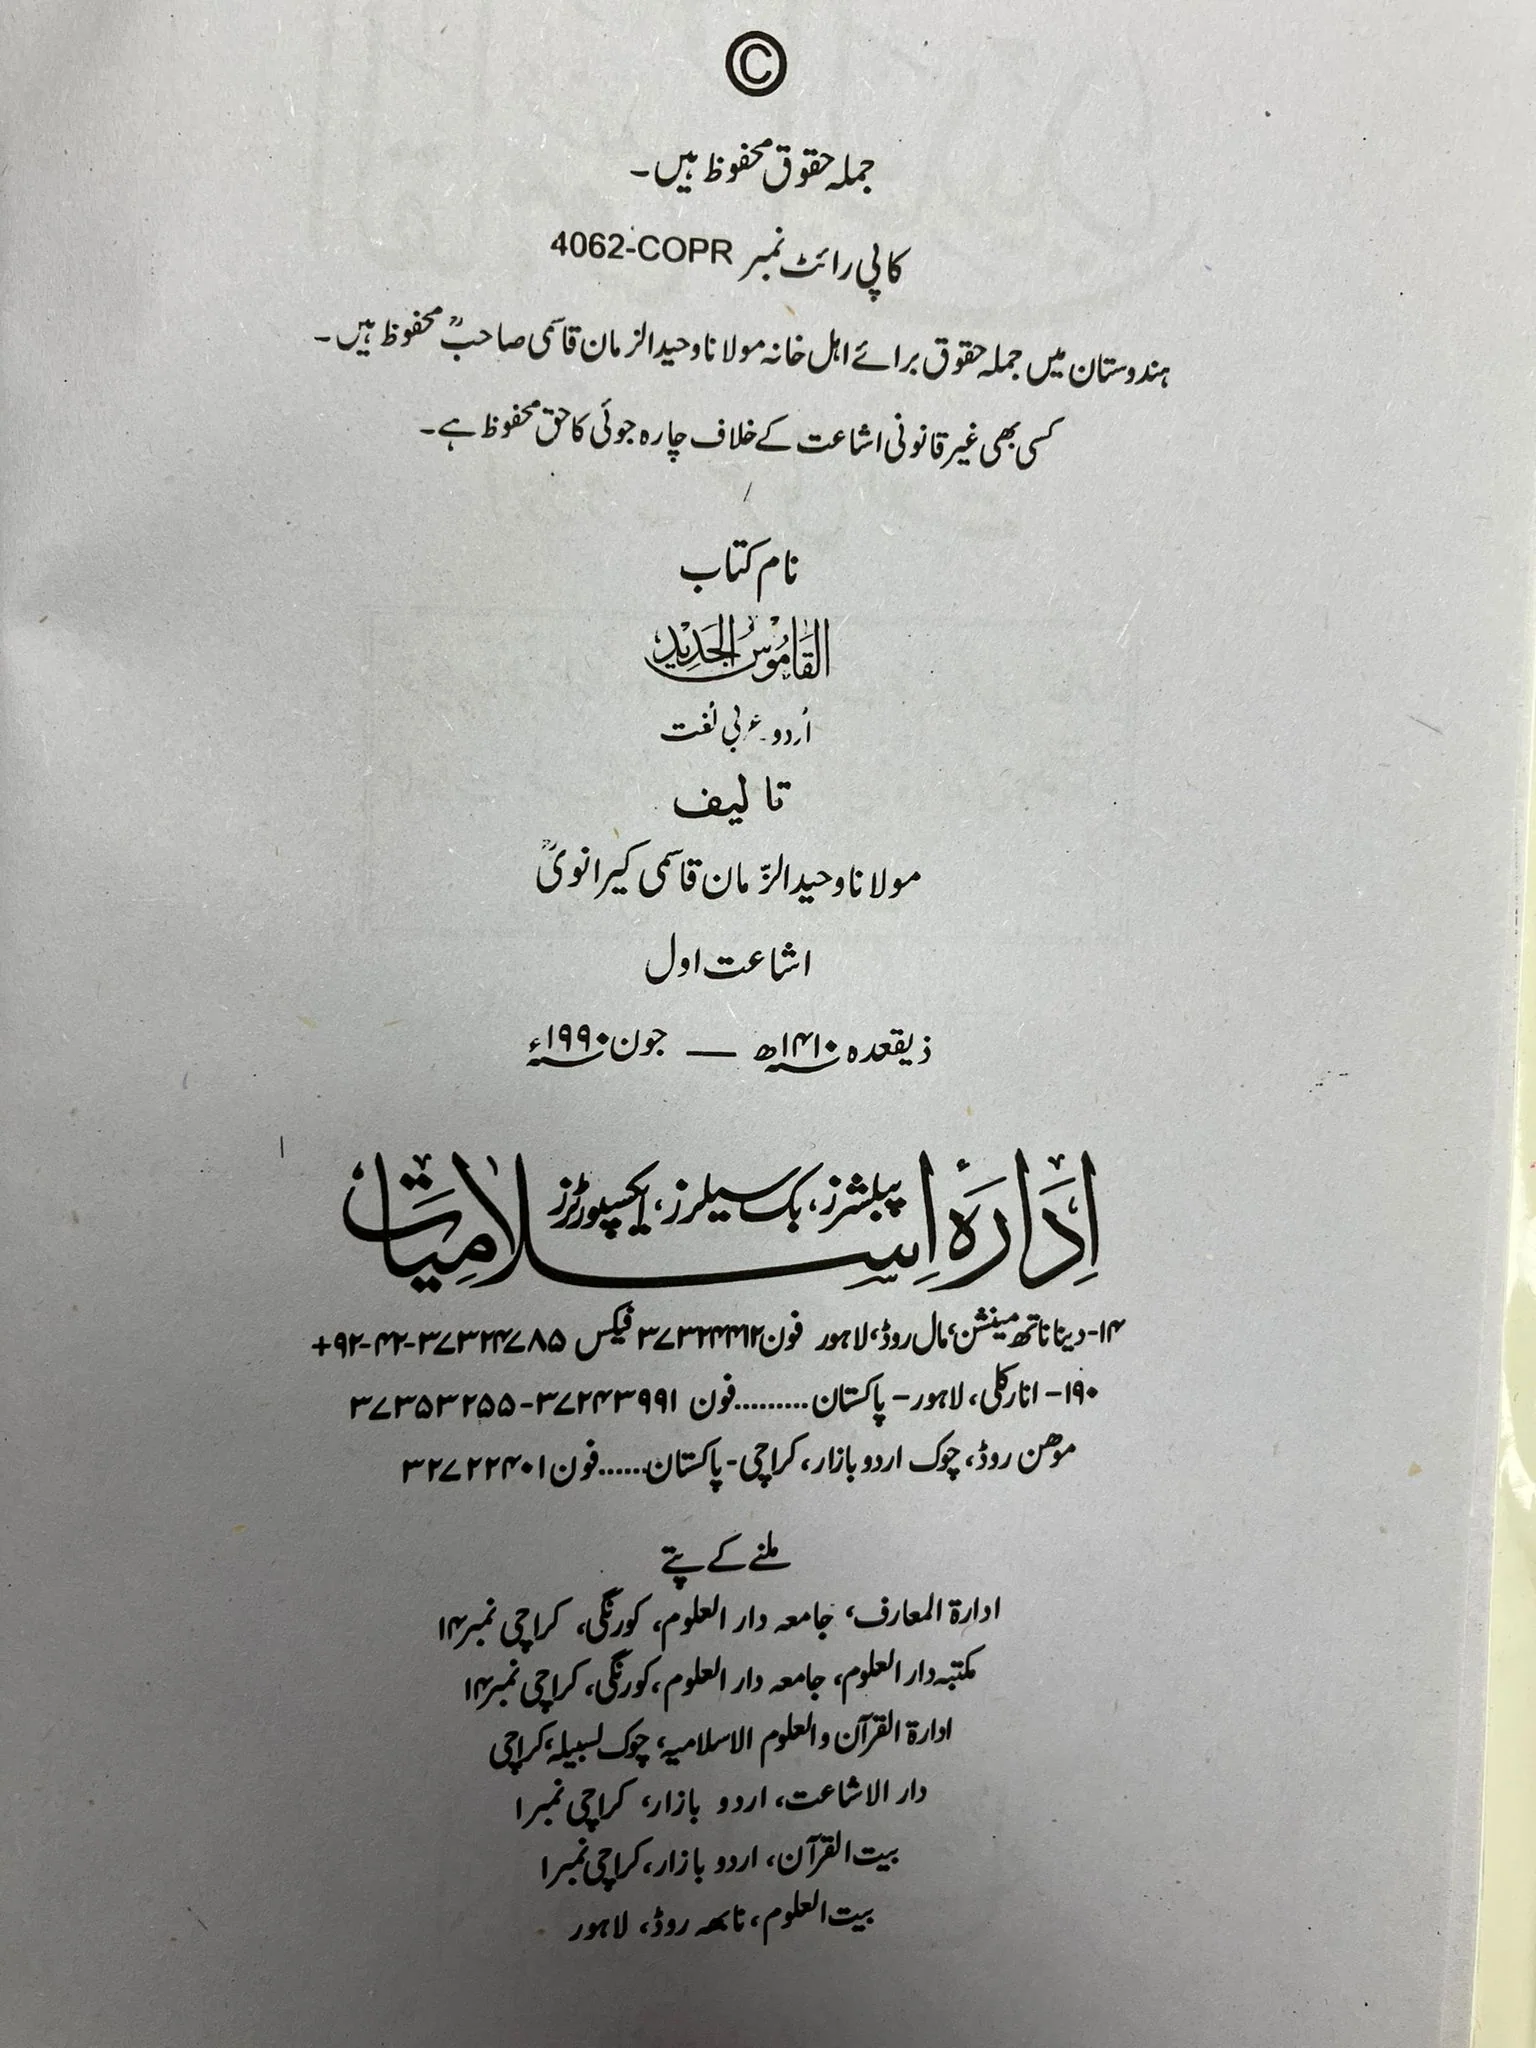 ©
جملہ حقوق محفوظ ہیں۔
کاپی رائٹ نمبر 4062-COPR
ہندوستان میں جملہ حقوق برائے اہل خانہ مولانا وحید الزمان قاسمی صاحبؒ محفوظ ہیں۔
کسی بھی غیر قانونی اشاعت کے خلاف چارہ جوئی کا حق محفوظ ہے۔
نام کتاب
القَامُوسُ الجَدِيد
اُردو۔عربی لُغت
تالیف
مولانا وحید الزّمان قاسمی کیرانویؒ
اشاعت اول
ذیقعدہ ۱۴۱۰ھ — جون ۱۹۹۰ء
اِدَارَہٴ اِسلامِیَات پبلشرز، بک سیلرز، ایکسپورٹرز
۱۴- دینا ناتھ مینشن، مال روڈ، لاہور فون ۳۷۳۲۴۴۱۲ فیکس ۳۷۳۲۴۷۸۵-۴۲-۹۲+
۱۹۰- انارکلی، لاہور- پاکستان.........فون ۳۷۲۴۳۹۹۱-۳۷۳۵۳۲۵۵
موھن روڈ، چوک اردو بازار، کراچی- پاکستان......فون ۳۲۷۲۲۴۰۱
ملنے کے پتے
ادارۃ المعارف، جامعہ دار العلوم، کورنگی، کراچی نمبر ۱۴
مکتبہ دار العلوم، جامعہ دار العلوم، کورنگی، کراچی نمبر ۱۴
ادارۃ القرآن والعلوم الاسلامیہ، چوک لسبیلہ، کراچی
دار الاشاعت، اردو بازار، کراچی نمبر ۱
بیت القرآن، اردو بازار، کراچی نمبر ۱
بیت العلوم، نابھہ روڈ، لاہور